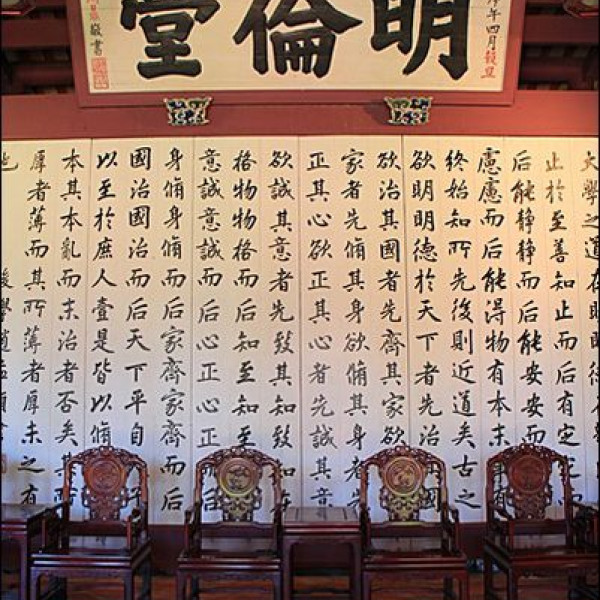 明倫堂
年四月穀旦
敬書
大學之道在明明
止於至善知止而后有定定
后能静静而后能安安而
慮慮而后能得物有本末事有
終始知所先後則近道矣古之
欲明明德於天下者先治國
欲治其國者先齊其家欲
家者先脩其身欲脩其身者
正其心欲正其心者先誠其意
欲誠其意者先致其知致知在
格物物格而后知至知至
意誠意誠而后心正心正
身脩身脩而后家齊家齊而后
國治國治而后天下平自天
以至於庶人壹是皆以脩
本其本亂而末治者否矣其
厚者薄而其所薄者厚未之有
也
後學趙